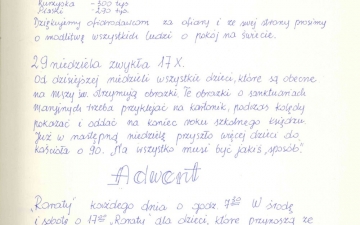 Rumunka - 300 tys.
- 270 tys.
Dziękujemy ofiarodawcom za ofiary i ze swej strony prosimy
o modlitwę wszystkich ludzi o pokój na świecie.
29 niedziela zwykła 17 X.
Od dzisiejszej niedzieli wszystkie dzieci, które są obecne
na Mszy św. otrzymują obrazki. Te obrazki o sanktuariach
Maryjnych trzeba przyklejać na kartonik, podczas kolędy
pokazać i oddać na koniec roku szkolnego księdzu.
Już w następną niedzielę przyszło więcej dzieci do
kościoła o 90. "Na wszystko musi być jakiś sposób".
Adwent
"Roraty" każdego dnia o godz. 7 00 W środę
i sobotę o 17 00 "Roraty" dla dzieci, które przynoszą ze